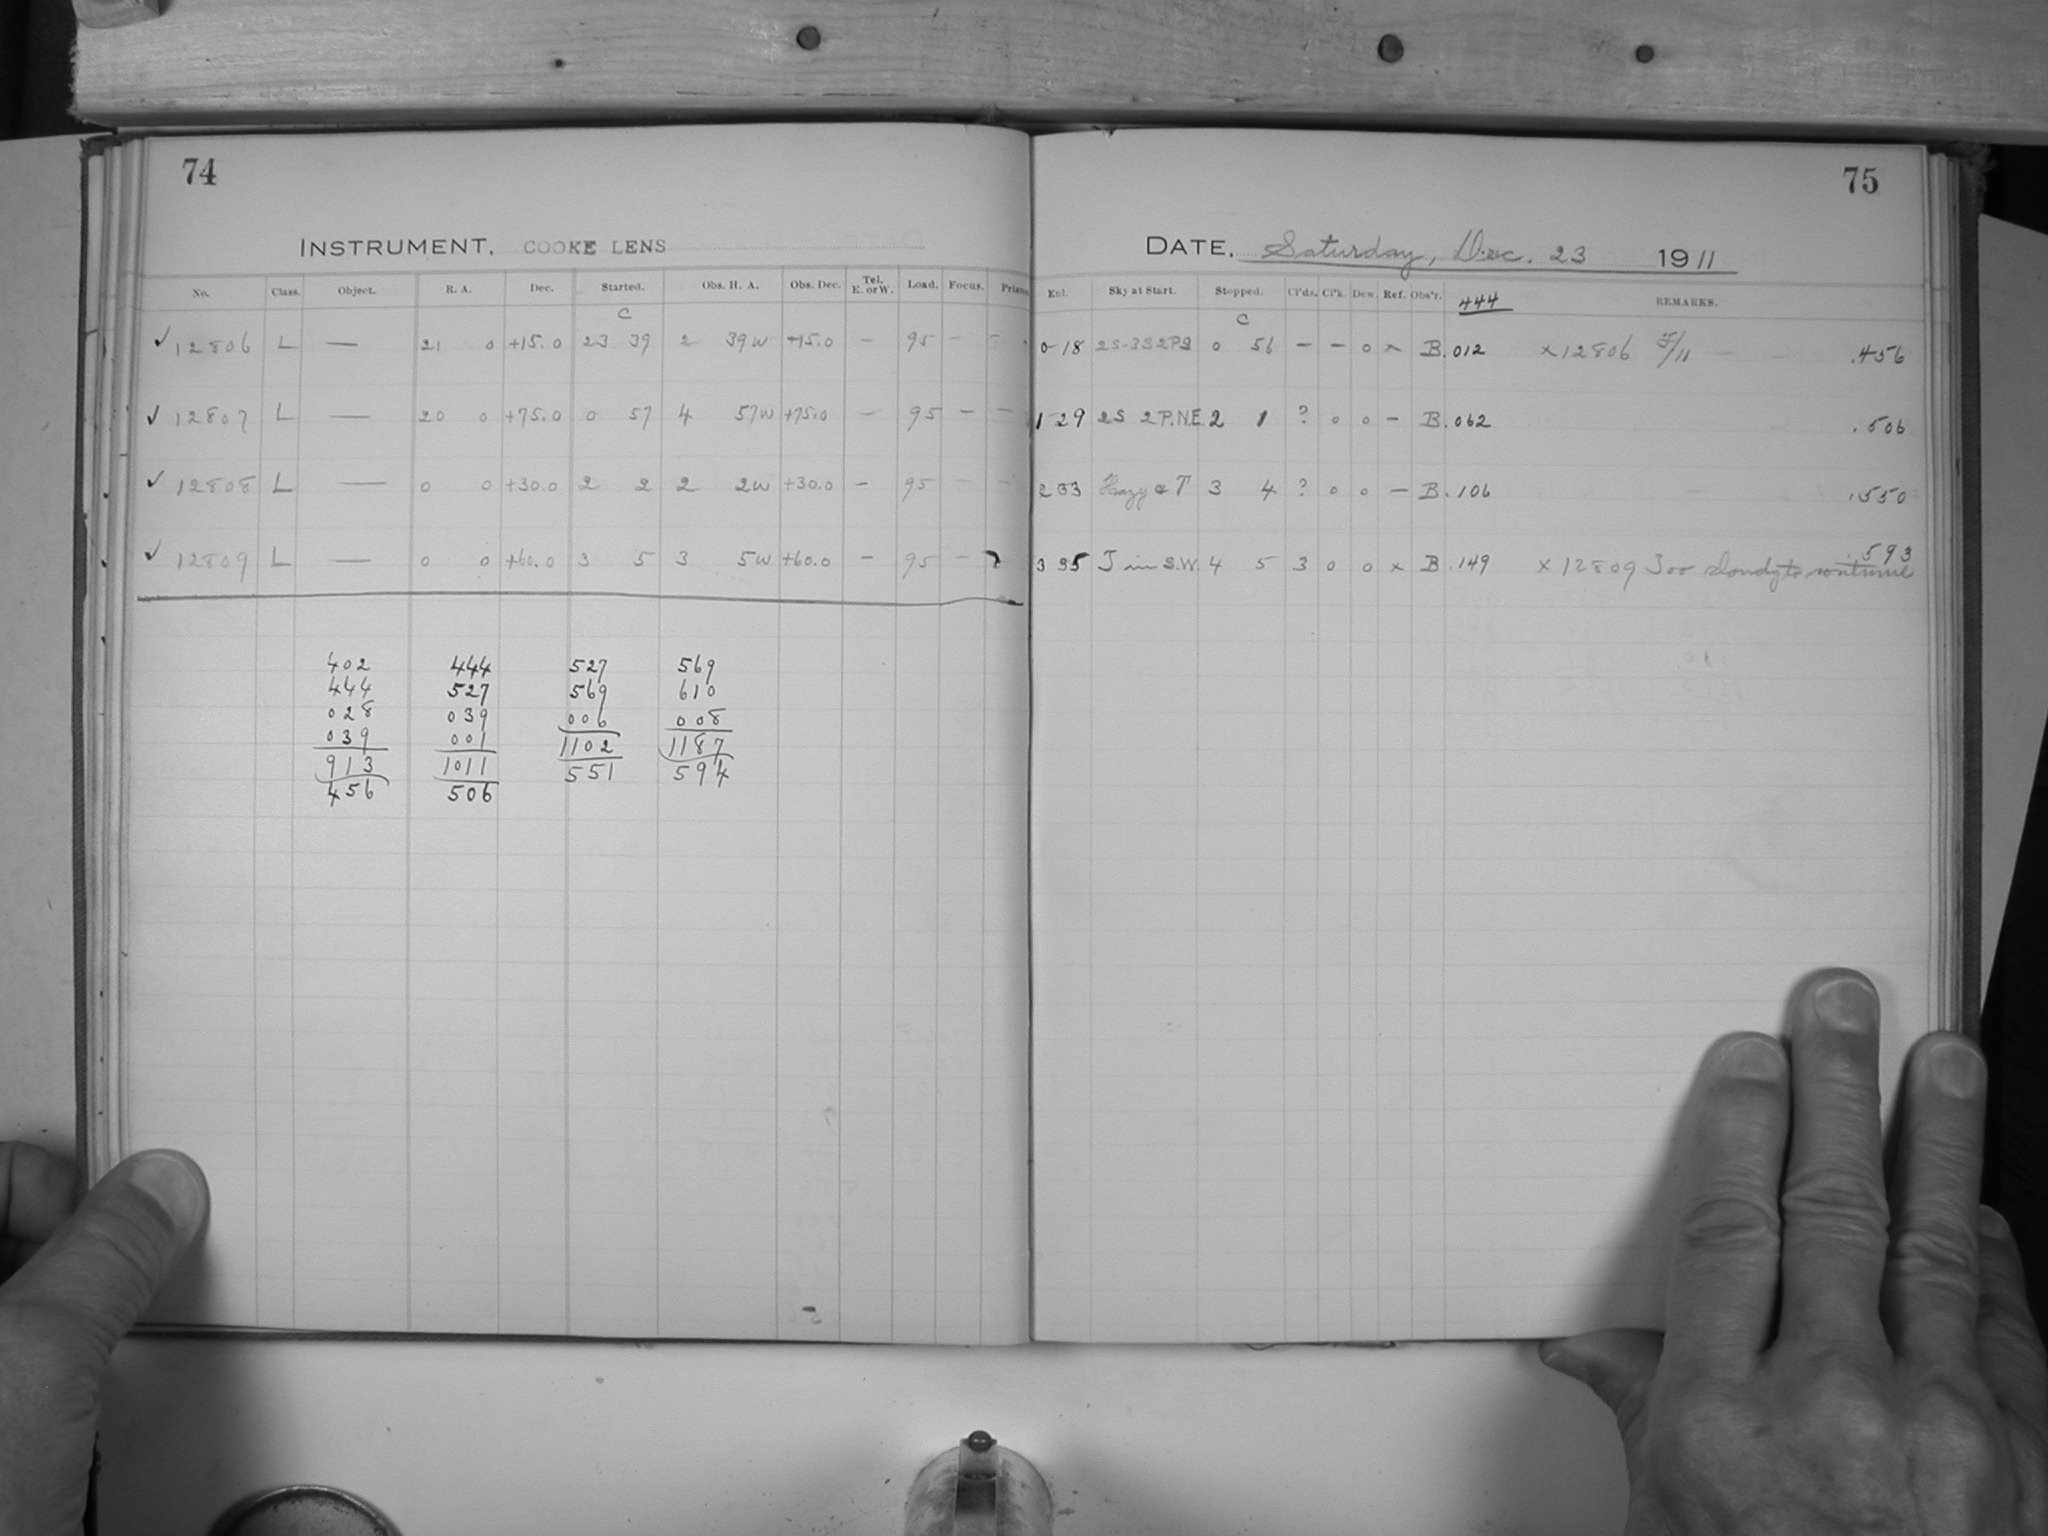 74
INSTRUMENT. COOKE LENS
No. Class. Object. R. A. Dec. Started. Obs. H. A. Obs. Dec. Tel. E. or W. Load. Focus.
C
✓ 12806 L — 21 0 +15.0 23 39 2 39W +15.0 — 95 —
✓ 12807 L — 20 0 +75.0 0 57 4 57W +75.0 — 95 — —
✓ 12808 L — 0 0 +30.0 2 2 2 2W +30.0 — 95 — —
✓ 12809 L — 0 0 +60.0 3 5 3 5W +60.0 — 95 —
402 444 527 569
444 527 569 610
028 039 006 008
039 001 1102 1187
913 1011 551 594
456 506
75
DATE. Saturday, Dec. 23 1911
Sky at Start. Stopped. Cl'ds. Cl'k. Dew. Ref. Obs'r. 444 REMARKS.
C
0 18 2S-3S2PS 0 56 — — 0 x B .012 x 12806 F/11 — .456
1 29 2S 2P.N.E 2 1 ? 0 0 — B .062 .506
2 33 Hazy & T 3 4 ? 0 0 — B .106 .550
3 35 T in S.W. 4 5 3 0 0 x B .149 x 12809 Too cloudy to continue .593